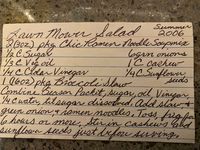 Lawn Mower Salad Summer 2006
2 (3oz) pkg Chic Ramen Noodle Soup mix
1/2 C Sugar 6 green onions
1/3 C Veg oil 1 C cashew
1/4 C Cider Vinegar 1/4 C Sunflower seeds
1 (16oz) pkg Broccoli Slaw
Combine Season Packet, sugar, oil, vinegar,
1/4 C water, til sugar dissolved. Add slaw &
green onion & ramen noodles, toss frig for
6 hours or more. Stir in cashews &
sunflower seeds just before serving.